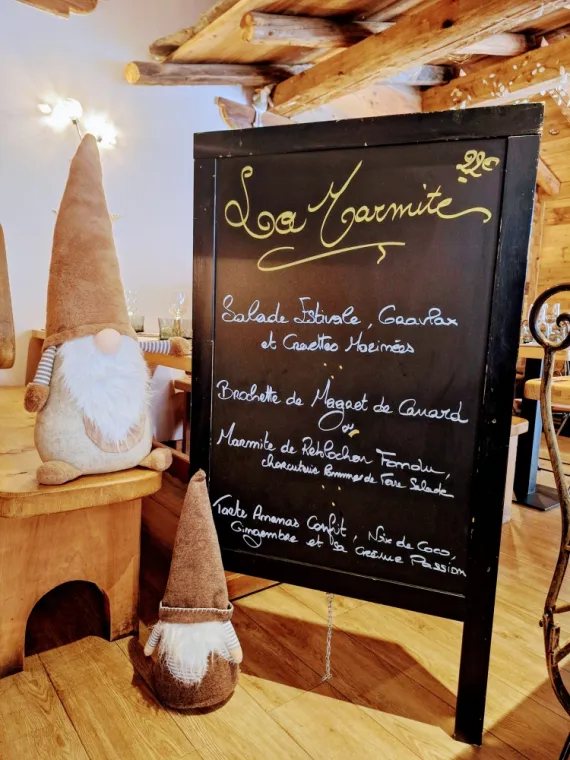 La Marmite 22€
Salade Estivale, Gravlax
et Crevettes Marinées
Brochette de Magret de Canard
ou
Marmite de Reblochon Fondu,
charcuterie Pommes de Terre Salade
Tarte Ananas Confit, Noix de Coco,
Gingembre et sa Crème Passion